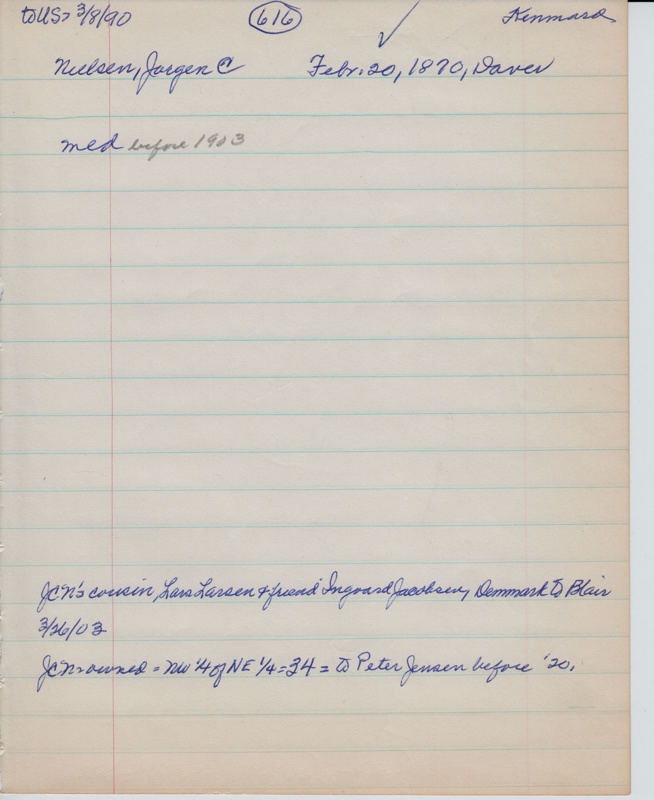 to US > 3/8/90 616 Kennard
Nielsen, Jorgen C Febr. 20, 1870,
med before 1903
JCN's cousin, Lars Larsen & friend Ingvard Jacobsen, Denmark to Blair
3/26/03
JCN > owned = NW 1/4 of NE 1/4 = 34 = to Peter Jensen before '20.